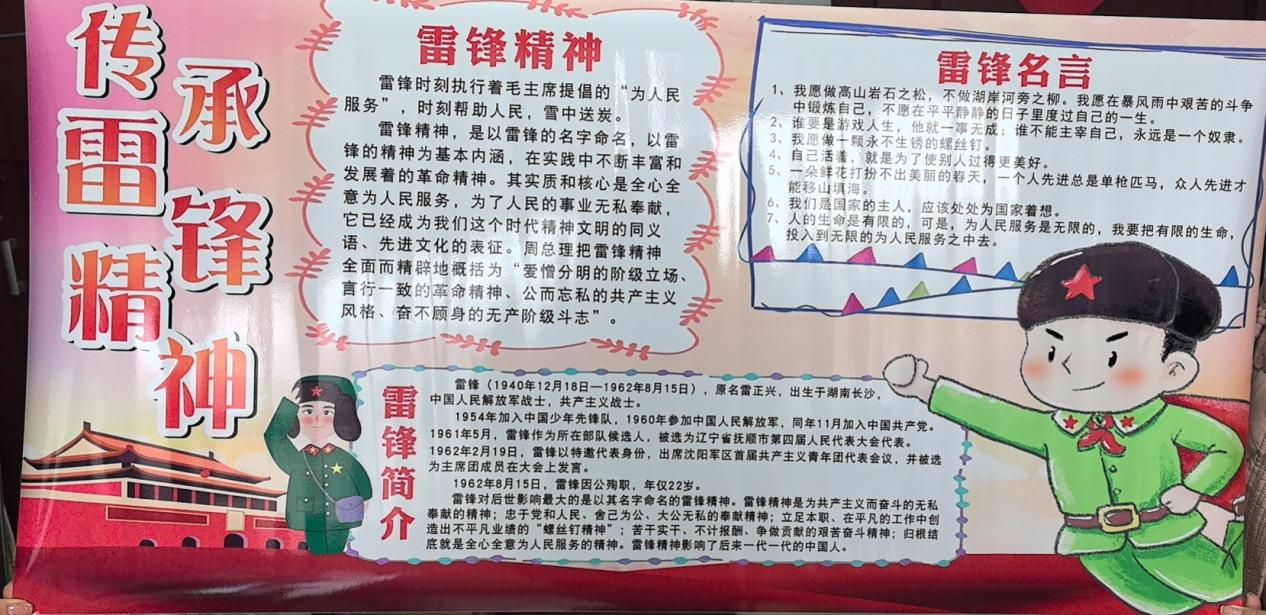 传承
雷锋
精神
雷锋精神
雷锋时刻执行着毛主席提倡的“为人民
服务”，时刻帮助人民，雪中送炭。
雷锋精神，是以雷锋的名字命名，以雷
锋的精神为基本内涵，在实践中不断丰富和
发展着的革命精神。其实质和核心是全心全
意为人民服务，为了人民的事业无私奉献，
它已经成为我们这个时代精神文明的同义
语、先进文化的表征。周总理把雷锋精神
全面而精辟地概括为“爱憎分明的阶级立场、
言行一致的革命精神、公而忘私的共产主义
风格、奋不顾身的无产阶级斗志”。
雷锋名言
1、我愿做高山岩石之松，不做湖岸河旁之柳。我愿在暴风雨中艰苦的斗争
中锻炼自己，不愿在平平静静的日子里度过自己的一生。
2、谁要是游戏人生，他就一事无成；谁不能主宰自己，永远是一个奴隶。
3、我愿做一颗永不生锈的螺丝钉。
4、自己活着，就是为了使别人过得更美好。
5、一朵鲜花打扮不出美丽的春天，一个人先进总是单枪匹马，众人先进才
能移山填海。
6、我们是国家的主人，应该处处为国家着想。
7、人的生命是有限的，可是，为人民服务是无限的，我要把有限的生命，
投入到无限的为人民服务之中去。
雷锋简介
雷锋（1940年12月18日—1962年8月15日），原名雷正兴，出生于湖南长沙，
中国人民解放军战士，共产主义战士。
1954年加入中国少年先锋队，1960年参加中国人民解放军，同年11月加入中国共产党。
1961年5月，雷锋作为所在部队候选人，被选为辽宁省抚顺市第四届人民代表大会代表。
1962年2月19日，雷锋以特邀代表身份，出席沈阳军区首届共产主义青年团代表会议，并被选
为主席团成员在大会上发言。
1962年8月15日，雷锋因公殉职，年仅22岁。
雷锋对后世影响最大的是以其名字命名的雷锋精神。雷锋精神是为共产主义而奋斗的无私
奉献的精神；忠于党和人民、舍己为公、大公无私的奉献精神；立足本职、在平凡的工作中创
造出不平凡业绩的“螺丝钉精神”；苦干实干、不计报酬、争做贡献的艰苦奋斗精神；归根结
底就是全心全意为人民服务的精神。雷锋精神影响了后来一代一代的中国人。